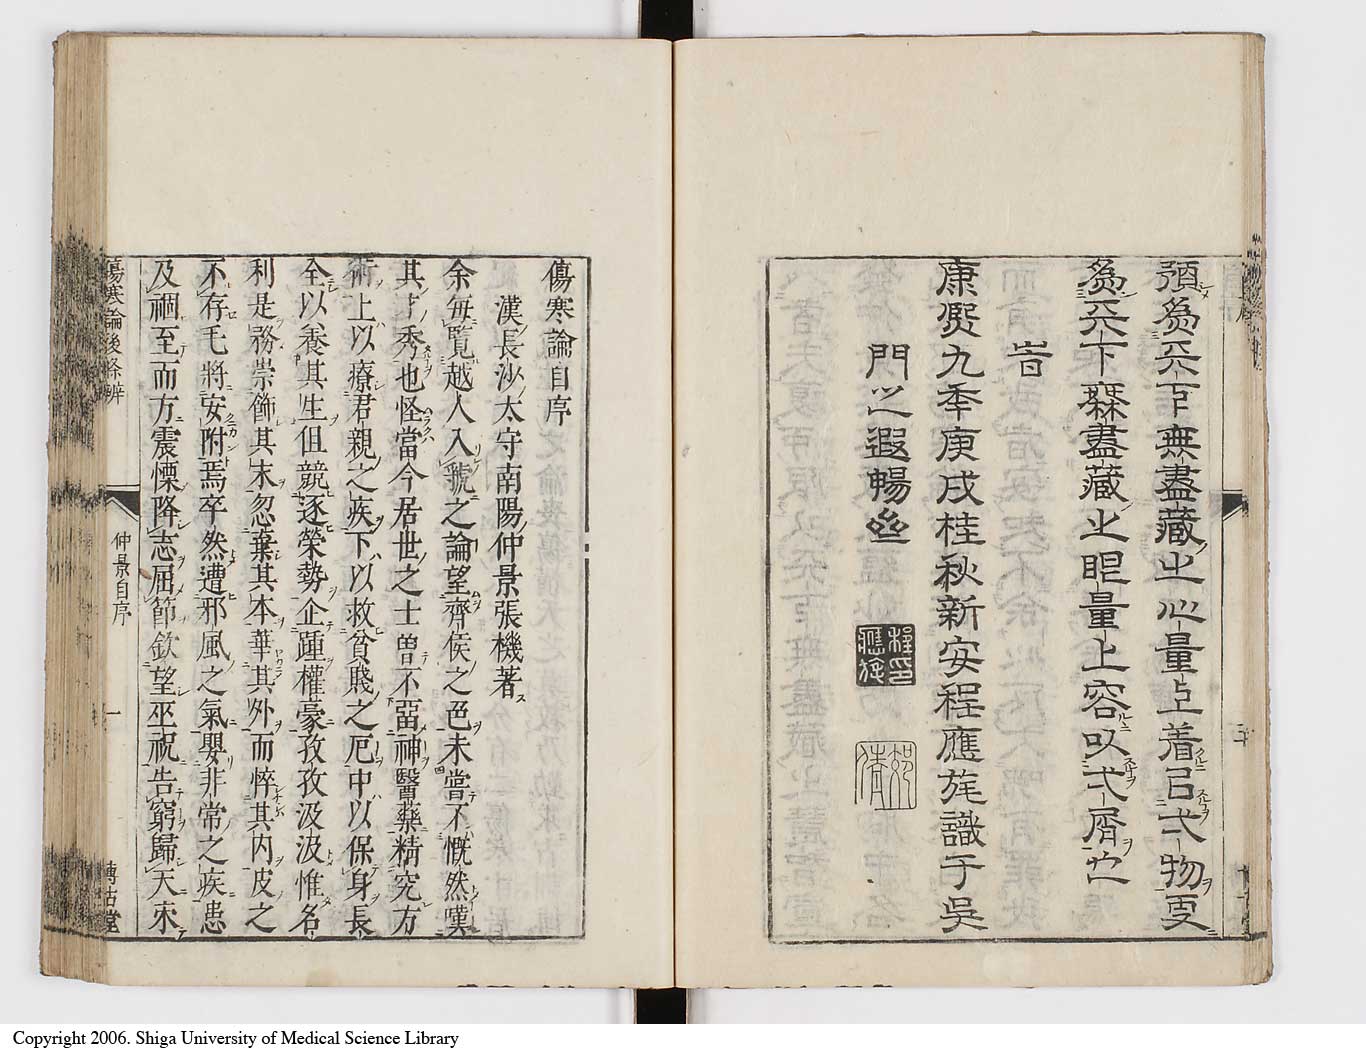 預為天下無盡藏之心量上着㠯弍物更
為天下無盡藏之眼量上容以弍屑也
旹
康熙九年庚戌桂秋新安程應旄識于吳
門之遐暢
程印應旄
郊倩
傷寒論自序
漢長沙太守南陽仲景張機著
余每覽越人入虢之論望齊侯之色未嘗不慨然嘆
其才秀也怪當今居世之士曽不留神醫藥精究方
術上以療君親之疾下以救貧賤之厄中以保身長
全以養其生但競逐榮勢企踵權豪孜孜汲汲惟名
利是務崇飾其末忽棄其本華其外而悴其內皮之
不存毛將安附焉卒然遭邪風之氣嬰非常之疾患
及禍至而方震慄降志屈節欽望巫祝告窮歸天束
傷寒論後條辨
仲景自序
一
博古堂
Copyright 2006. Shiga University of Medical Science Library